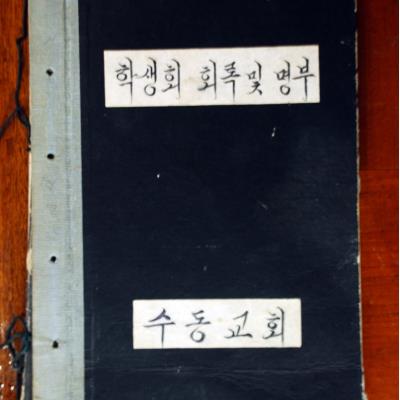 학생회 회록및 명부
수동교회